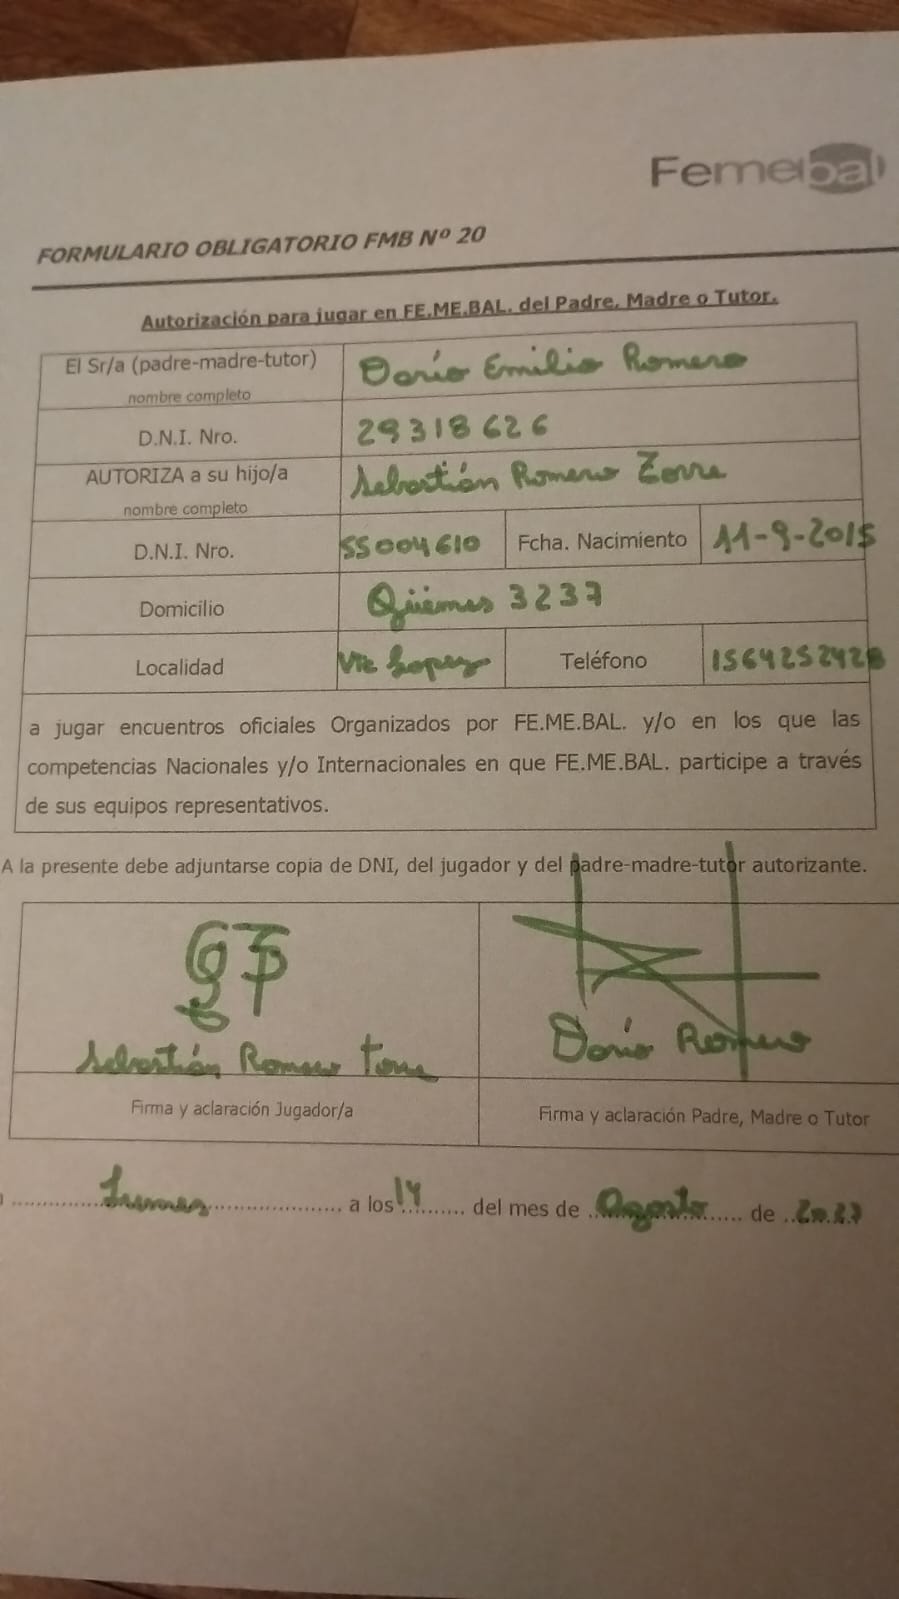 Femebal
FORMULARIO OBLIGATORIO FMB Nº 20
Autorización para jugar en FE.ME.BAL. del Padre, Madre o Tutor.
El Sr/a (padre-madre-tutor) Darío Emilio Romero
nombre completo
D.N.I. Nro. 29318626
AUTORIZA a su hijo/a Sebastián Romero
nombre completo
D.N.I. Nro. 55004610 Fcha. Nacimiento 11-9-2015
Domicilio Güemes 3237
Localidad Vte Lopez Teléfono 1564252428
a jugar encuentros oficiales Organizados por FE.ME.BAL. y/o en los que las
competencias Nacionales y/o Internacionales en que FE.ME.BAL. participe a través
de sus equipos representativos.
A la presente debe adjuntarse copia de DNI, del jugador y del padre-madre-tutor autorizante.
Sebastián Romero
Darío Romero
Firma y aclaración Jugador/a
Firma y aclaración Padre, Madre o Tutor
a los 14 del mes de Agosto de